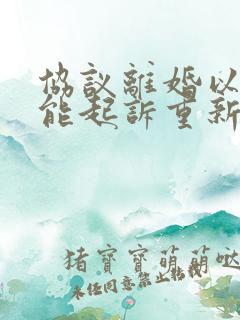 協議離婚以
能起訴重新
猪寶寶萌萌噠
未經同意禁止轉載